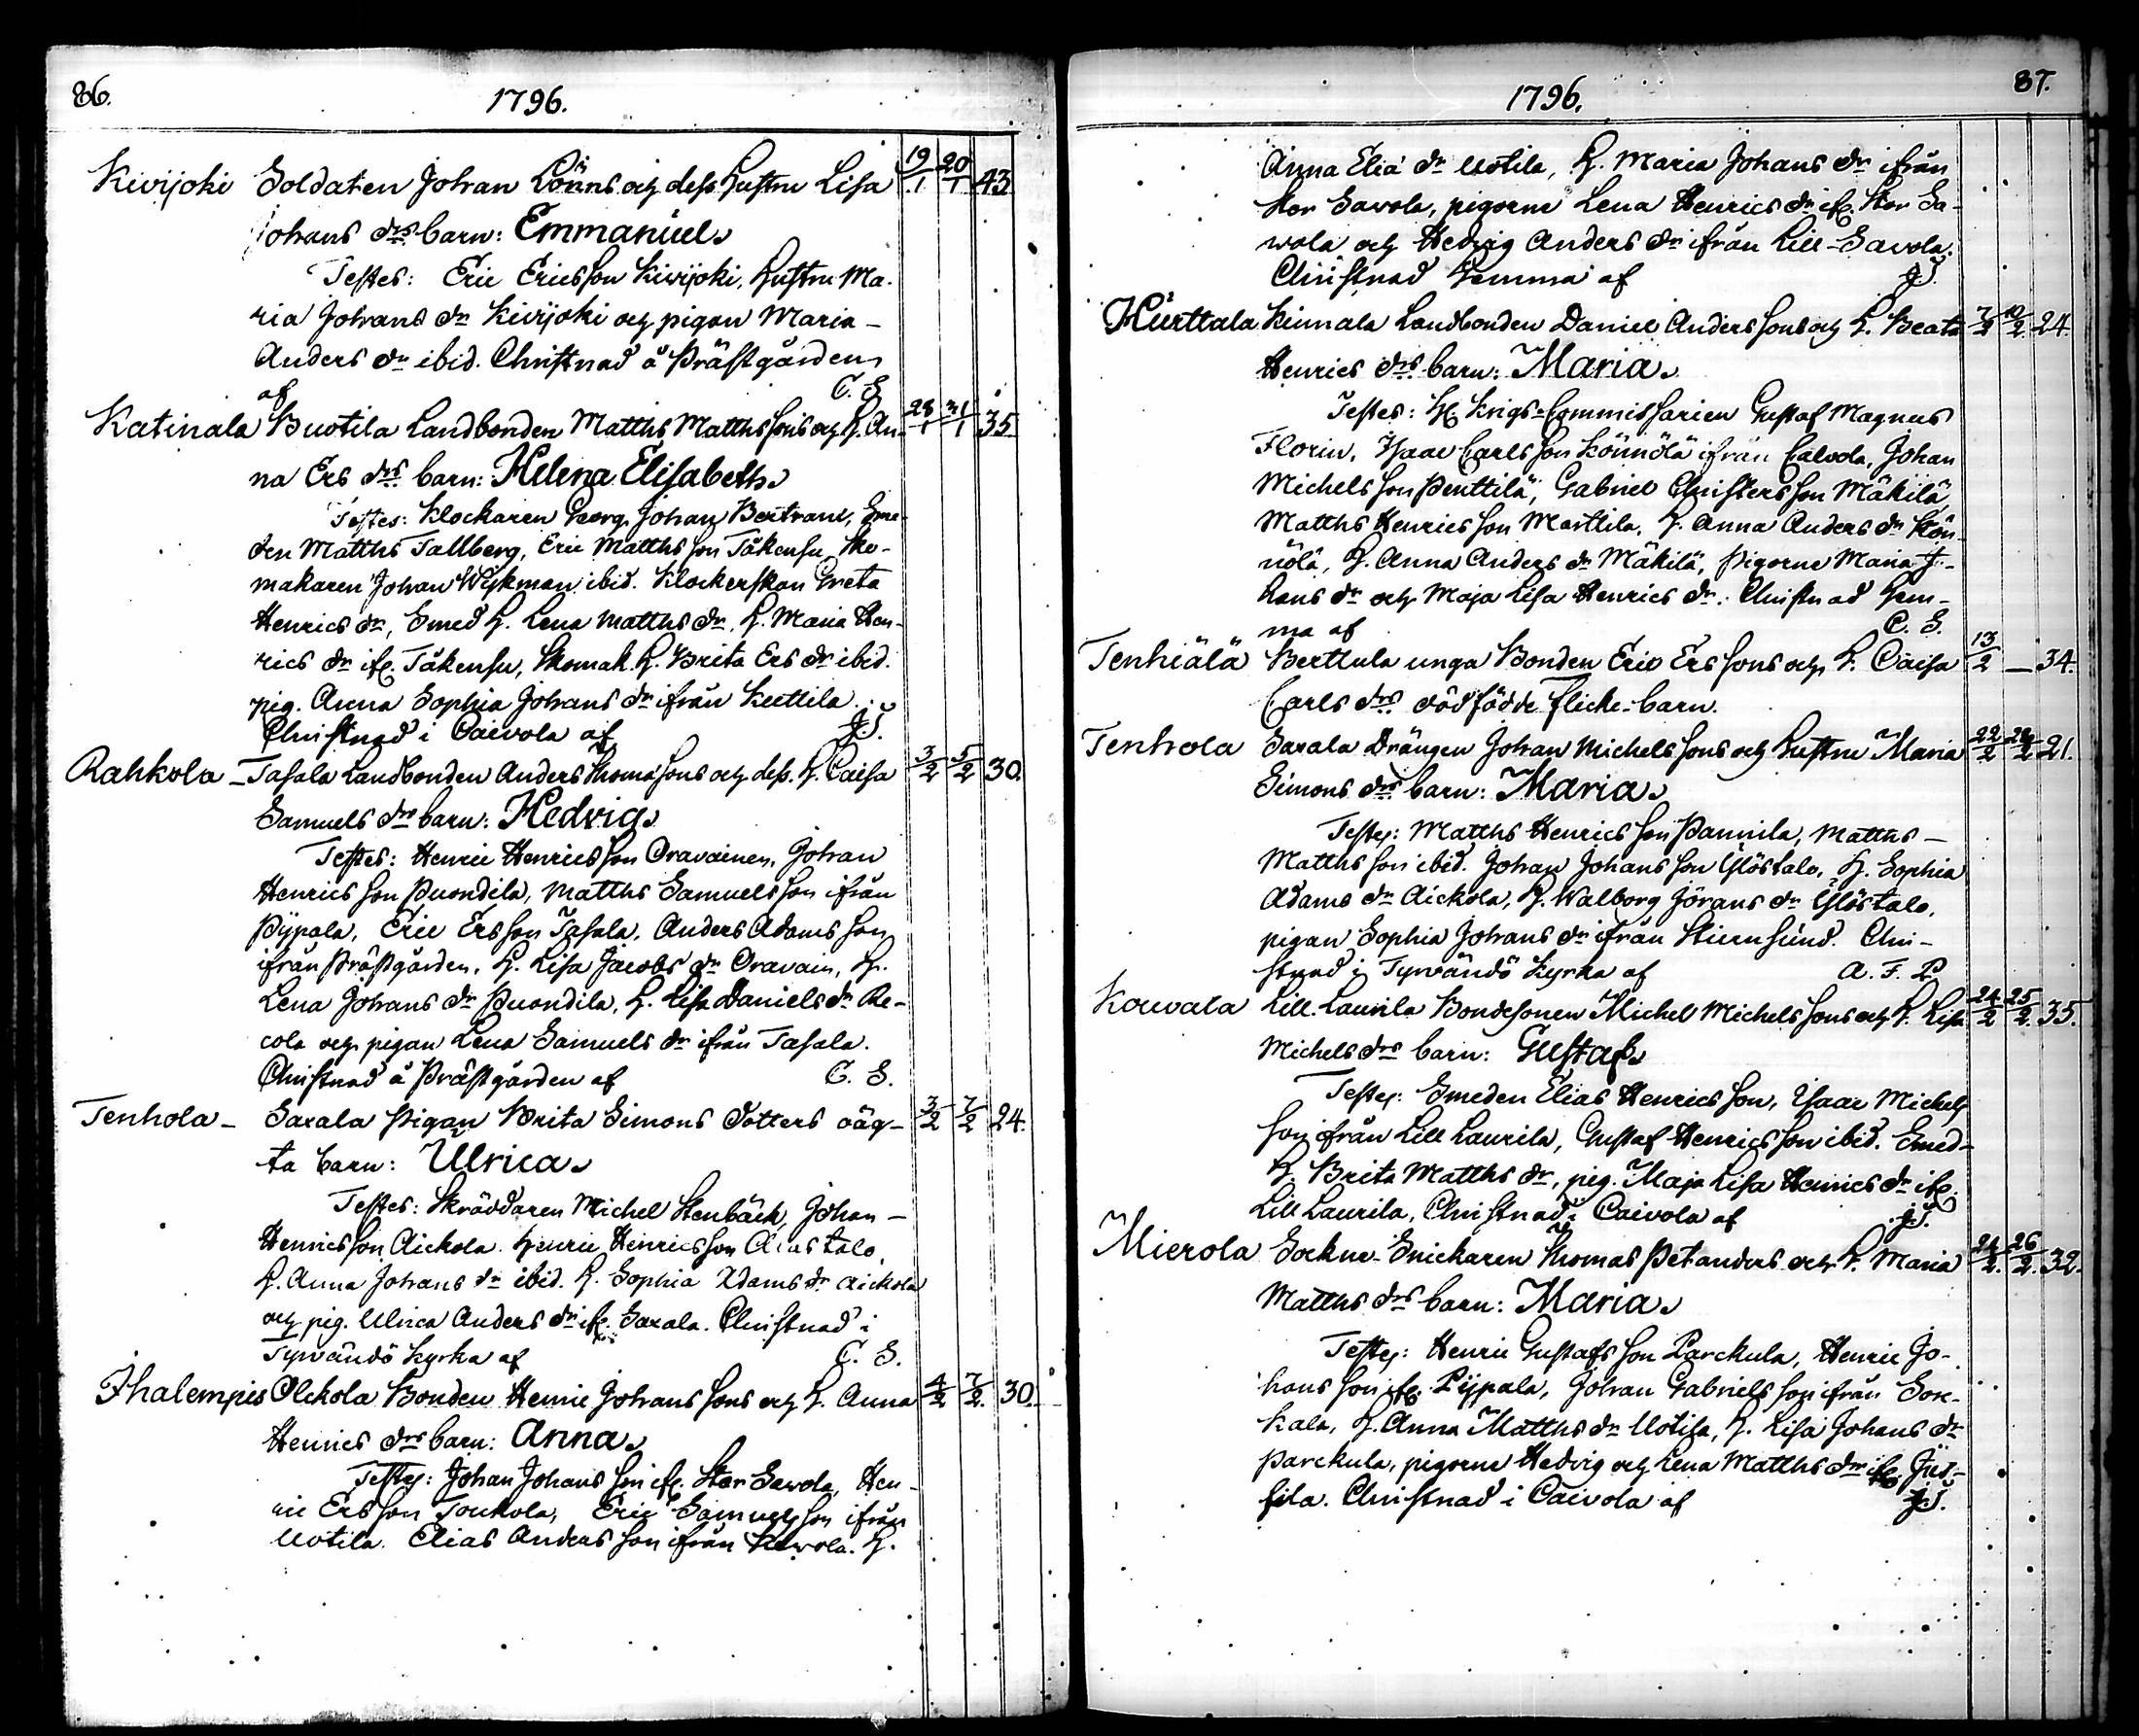 86.
1796.
Kivijoki Soldaten Johan Lönns och dess hustru Lisa 19/1 20/1 43
Johans drs barn: Emmanuel.
Testes: Eric Ericsson Kivijoki, hustru Ma-
ria Johans dr Kivijoki och pigan Maria
Anders dr ibid. Christnad å Prästgården
af C. S.
Katinala Buotila Landbonden Matths Matths sons och h. An- 28/1 31/1 35.
na Ers drs barn: Helena Elisabeth.
Testes: Klockaren Georg Johan Bertram, Sme-
den Matths Tallberg, Eric Matths son Täkensu, Sko-
makaren Johan Wijkman ibid. Klockerskan Greta
Henrics dr, Smed h. Lena Matths dr, h. Maria Hen-
rics dr ifr. Täkensu, Skomak. h. Brita Ers dr ibid.
pig. Anna Sophia Johans dr ifrån Keuttila.
Christnad i Caivola af J. S.
Rahkola – Tasala Landbonden Anders Thomæ sons och dess h. Caisa 3/2 5/2 30.
Samuels drs barn: Hedvig.
Testes: Henric Henrics son Oravainen, Johan
Henrics son Puondila, Matths Samuels son ifrån
Pijpala, Eric Ers son Tasala, Anders Adams son
ifrån Prästgården, h. Lisa Jacobs dr Oravain, h.
Lena Johans dr Puondila, h. Lisa Daniels dr Re-
cola och pigan Lena Samuels dr ifrån Tasala.
Christnad å Prästgården af C. S.
Tenhola – Saxala Pigan Brita Simons dotters oäg- 3/2 7/2 24.
ta barn: Ulrica.
Testes: Skräddaren Michel Stenbäck, Johan –
Henrics son Aickola. Henric Henricsson
h. Anna Johans dr ibid. h. Sophia Adams dr Aickola
och pig. Ulrica Anders dr ifr. Saxala. Christnad i
Tyrvändö kyrka af C. S.
Ihalempis Olckola Bonden Henric Johans sons och h. Anna 4/2 7/2 30.
Henrics drs barn: Anna.
Testes: Johan Johans son ifr. Stor Savola, Hen-
ric Ers son Toukola, Eric Samuels son ifrån
Uotila. Elias Anders son ifrån Savola. h.
1796.
87.
Anna Eliæ dr Uotila, h. Maria Johans dr ifrån
Stor Savola, pigorne Lena Henrics dr ifr. Stor Sa-
vola och Hedvig Anders dr ifrån Lill-Savola.
Christnad hemma af J. S.
Hürttala Keinnala Landbonden Daniel Anders sons och h. Beata 7/2 10/2 24.
Henrics drs barn: Maria.
Testes: H. Krigs-Commissarien Gustaf Magnus
Florin, Isaac Carls son Könnölä ifrån Calvola, Johan
Michels son Penttilä, Gabriel Christers son Mäkilä
Matths Henrics son Marttila, h. Anna Anders dr Kön-
nölä, h. Anna Anders dr Mäkilä, Pigorne Maria J-
hans dr och Maja Lisa Henrics dr. Christnad hem-
ma af C. S.
Tenhiälä Berttula unga Bonden Eric Ers sons och h. Caisa 13/2 — 34.
Carls drs dödfödde flicke-barn.
Tenhola Saxala Drängen Johan Michels sons och hustru Maria 22/2 21.
Simons drs barn: Maria.
Testes: Matths Henrics son Pannila, Matths –
Matths son ibid. Johan Johans son Ylöstalo, h. Sophia
Adams dr Aickola, h. Walborg Jörans dr Ylöstalo,
pigan Sophia Johans dr ifrån Stiernsund. Chri-
stnad i Tyrvändö kyrka af A. F. P.
Kouvala Lill. Laurila Bondesonen Michel Michels sons och h. Lisa 24/2 25/2. 35.
Michels drs barn: Gustaf.
Testes: Smeden Elias Henrics son, Isaac Michels
son ifrån Lill Laurila, Gustaf Henrics son ibid. Smed-
h. Brita Matths dr, pig. Maja Lisa Henrics dr ifr.
Lill Laurila, Christnad i Caivola af J. S.
Mierola Sockne-Snickaren Thomas Petanders och h. Maria 24/2. 26/2. 32.
Matths drs barn: Maria.
Testes: Henric Gustafs son Parckula, Henric Jo-
hans son ifr. Pijpala, Johan Gabriels son ifrån Sors-
kala, h. Anna Matths dr Uotila, h. Lisa Johans dr
Parckula, pigorne Hedvig och Lena Matths dr ifr. Jus-
sila. Christnad i Caivola af J. S.